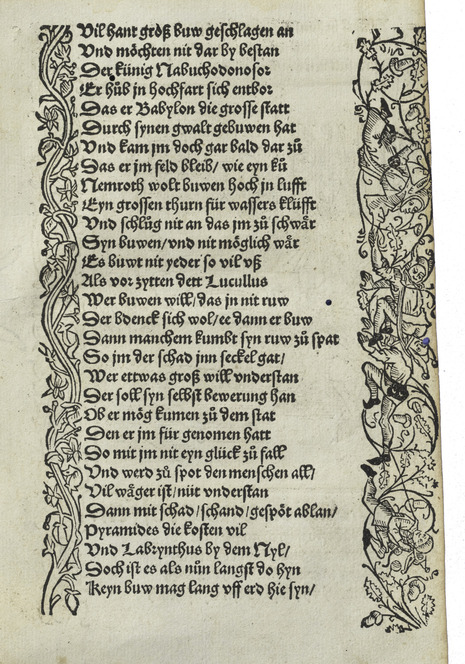 Vil hant größ buw geschlagen an
Vnd möchten nit dar by bestan
Der künig Nabuchodonosor
Er hůb jn hochfart sich entbor
Das er Babylon die grosse statt
Durch synen gwalt gebuwen hat
Vnd kam jm doch gar bald dar zů
Das er jm feld bleib/ wie eyn ků
Nemroth wolt buwen hoch jn lufft
Eyn grossen thurn für wassers klüfft
Vnd schlůg nit an das jm zů schwår
Syn buwen/vnd nit möglich wår
Es buwt nit yeder so vil vß
Als vor zytten dett Lucullus
Wer buwen will/das jn nit ruw
Der bdenck sich wol/ee dann er buw
Dann manchem kumbt syn ruw zů spat
So jm der schad jnn seckel gat/
Wer ettwas groß will vnderstan
Der soll syn selbst bewerung han
Ob er mög kumen zů dem stat
Den er jm für genomen hatt
Do mit jm nit eyn glück zů fall
Vnd werd zů spot den menschen all/
Vil wåger ist/nüt vnderstan
Dann mit schad/schand/gespöt ablan/
Pyramides die kosten vil
Vnd Labrynthus by dem Nyl/
Doch ist es als nůn langst do hyn
Keyn buw mag lang vff erd hie syn/